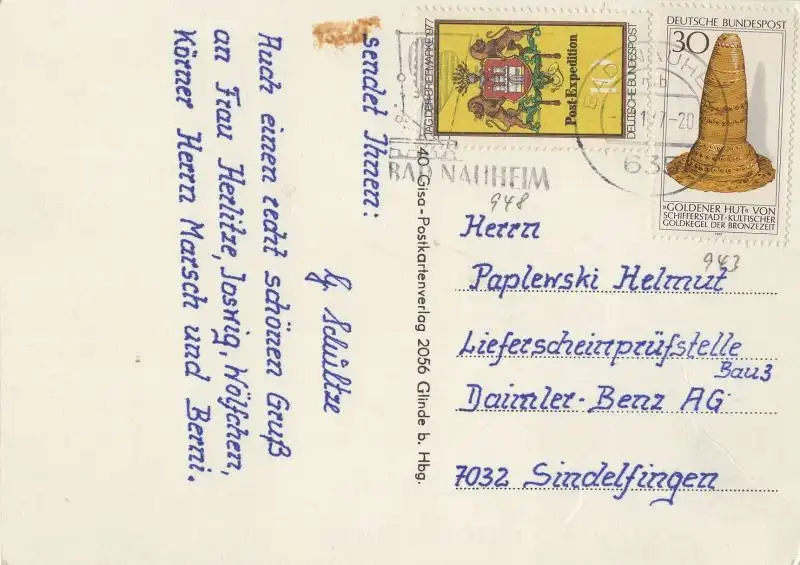 sendet Ihnen:
G. Schültze
Auch einen recht schönen Gruß
an Frau Herlitze, Joswig, Wölfchen,
Körner Herrn Marsch und Berni.
40 Gisa-Postkartenverlag 2056 Glinde b. Hbg.
TAG DER BRIEFMARKE 1977
Post-Expedition
10
DEUTSCHE BUNDESPOST
DEUTSCHE BUNDESPOST
30
»GOLDENER HUT« VON
SCHIFFERSTADT·KULTISCHER
GOLDKEGEL DER BRONZEZEIT
1977
BAD NAUHEIM
-20
635
948
943
Herrn
Paplewski Helmut
Lieferscheinprüfstelle
Bau 3
Daimler-Benz AG
7032 Sindelfingen